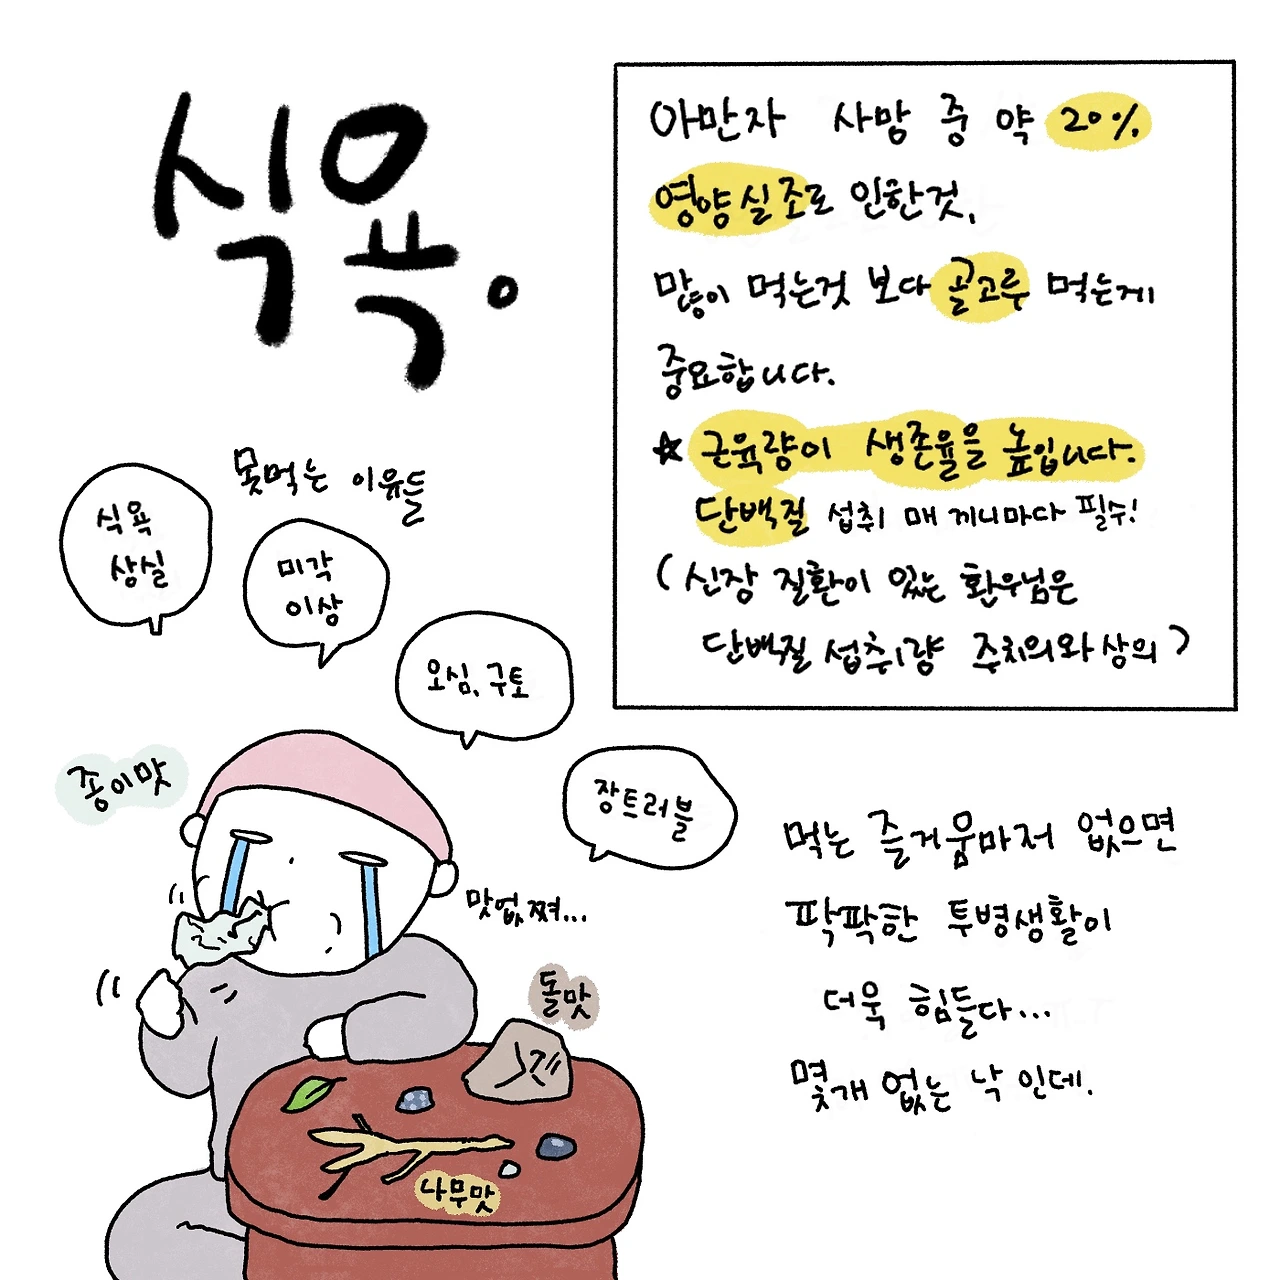 식욕.
아만자 사망 중 약 20%
영양실조로 인한것.
많이 먹는것 보다 골고루 먹는게
중요합니다.
☆ 근육량이 생존율을 높입니다.
단백질 섭취 매 끼니마다 필수!
(신장 질환이 있는 환우님은
단백질 섭취량 주치의와 상의)
못먹는 이유들
식욕
상실
미각
이상
오심, 구토
장트러블
종이맛
맛없쪄...
돌맛
나무맛
먹는 즐거움마저 없으면
팍팍한 투병생활이
더욱 힘들다...
몇개 없는 낙 인데.